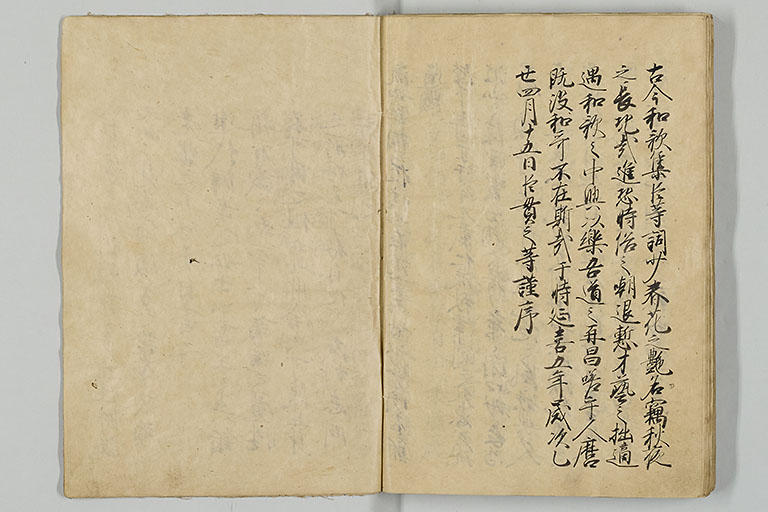 古今和歌集臣等詞少春花之艶名竊秋夜
之長況哉進恐時俗之嘲退慙才藝之拙適
遇和歌之中興以樂吾道之再昌嗟乎人麿
既没和哥不在斯哉于時延喜五年歳次乙
丑四月十五日臣貫之等謹序